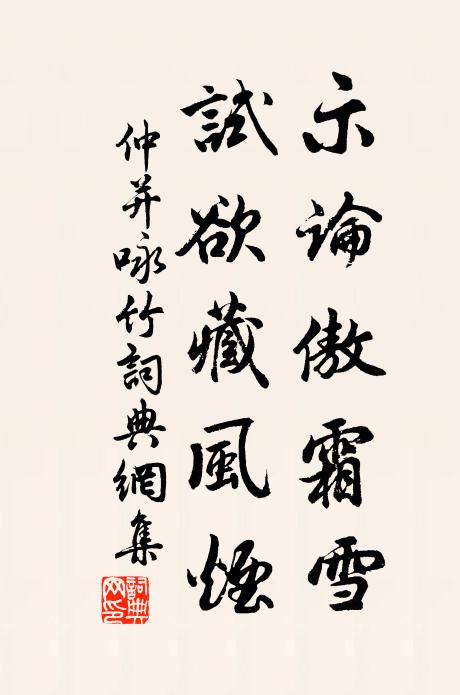 示論傲霜雪
試欲藏風煙
仲并咏竹詞典網集
詞典網印